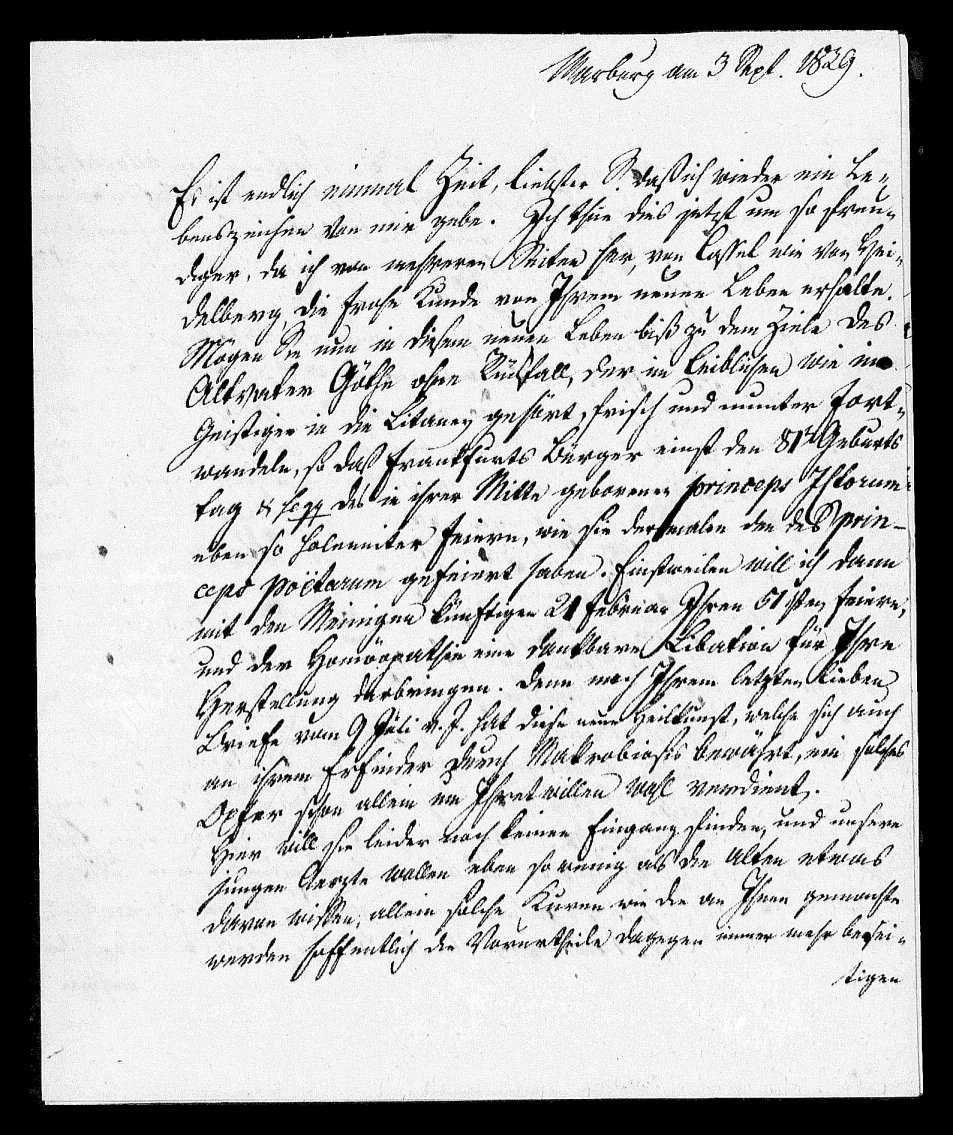 Marburg am 3 Sept. 1829.
Es ist endlich einmal Zeit, liebster S. daß ich wieder ein Le-
benszeichen von mir gebe. Ich thue dies jetzt um so freu-
diger, da ich von mehreren Seiten her von Cassel wie von Hei-
delberg die frohe Kunde von Ihrem neuen Leben erhalte.
Mögen Sie nun in diesem neuen Leben biß zu dem Ziele des
Altvater Göthe ohne Rückfall, der im Leiblichen wie im
Geistigen in die Litaney gehört, frisch und munter fort-
wandeln, so daß Frankfurts Bürger einst den 81st Geburts
tag & seqq des in ihrer Mitte geborenen princeps Ictorum
eben so solenniter feiern, wie sie dermalen den des prin-
ceps poëtarum gefeiert haben. Einstweilen will ich dann
mit den Meinigen künftigen 21 Februar Ihren 51sten feiern,
und der Homöopathie eine dankbare Libation für Ihre
Herstellung darbringen. Denn nach Ihrem letzten lieben
Briefe vom 9 Juli d. J. hat diese neue Heilkunst, welche sich auch
an ihrem Erfinder durch Makrobiosis bewährt, ein solches
Opfer schon allein um Ihretwillen wohl verdient.
Hier will sie leider noch keinen Eingang finden, und unsere
jungen Aerzte wollen eben so wenig als die Alten etwas
davon wissen, allein solche Kuren wie die an Ihnen gemachte
werden hoffentlich die Vorurtheile dagegen immer mehr besei-
tigen